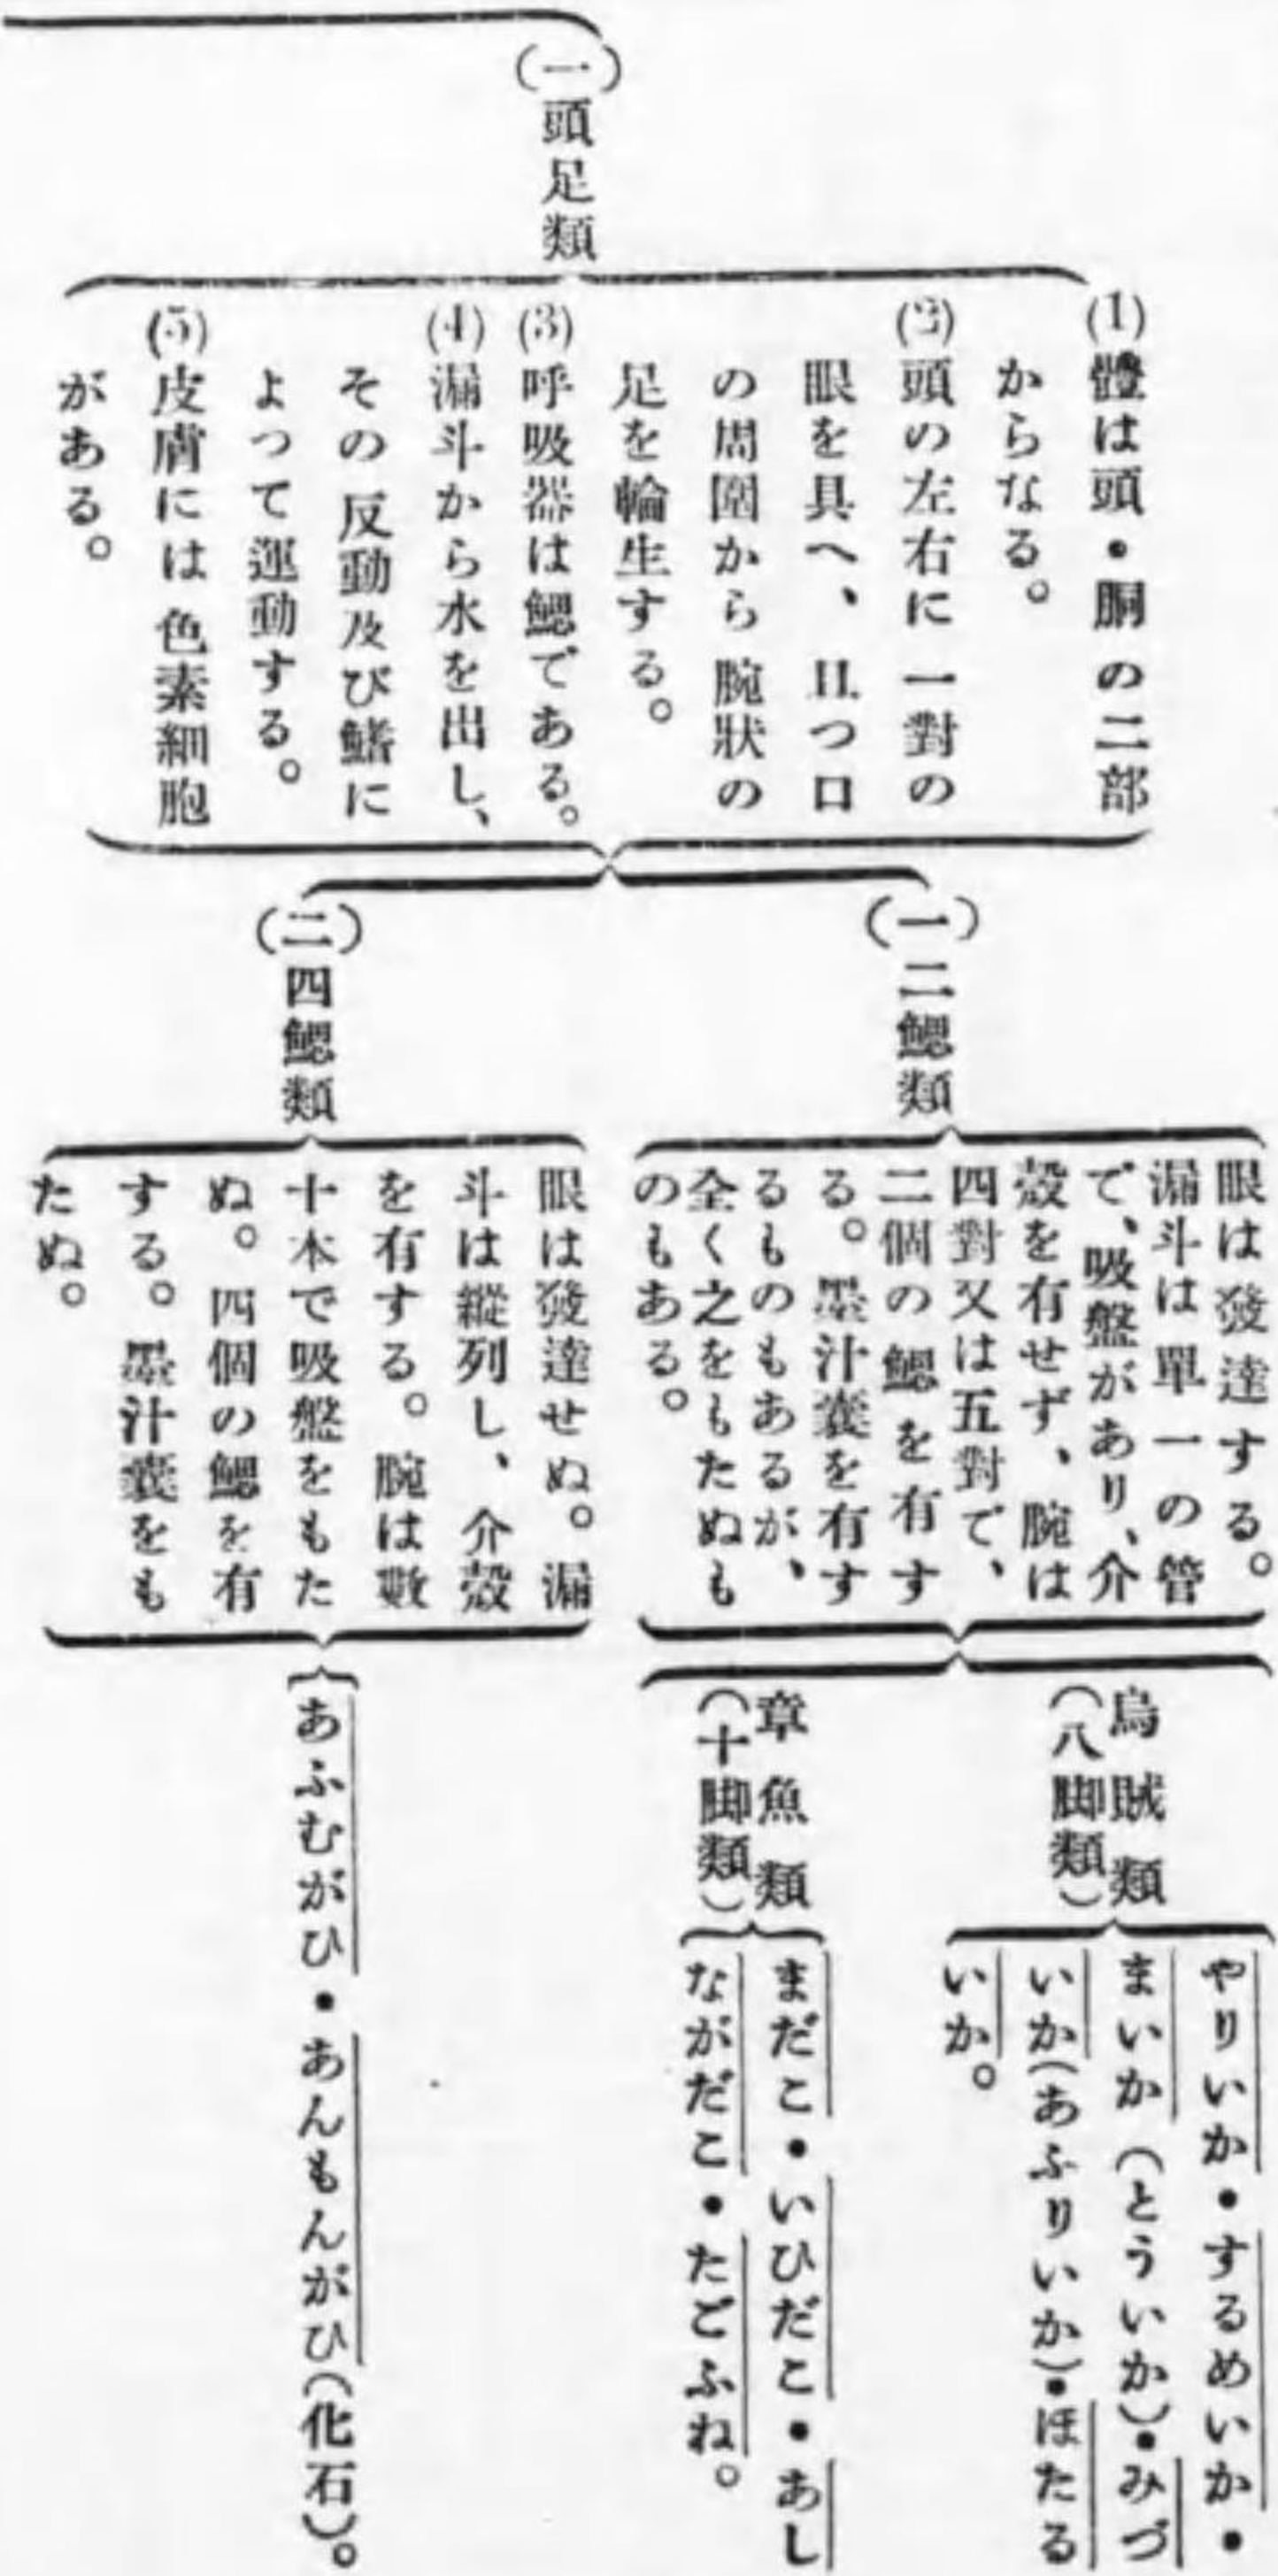 (一)頭足類
(1)體は頭・胴の二部
からなる。
(2)頭の左右に一對の
眼を具へ、且つ口
の周圍から腕狀の
足を輪生する。
(3)呼吸器は鰓である。
(4)漏斗から水を出し、
その反動及び鰭に
よつて運動する。
(5)皮膚には色素細胞
がある。
(一)二鰓類
眼は發達する。
漏斗は單一の管
で、吸盤があり、介
殼を有せず、腕は
四對又は五對で、
二個の鰓を有す
る。墨汁囊を有す
るものもあるが、
全く之をもたぬも
のもある。
烏賊類
(八脚類)
やりいか・するめいか・
まいか(とういか)・みづ
いか(あふりいか)・ほたる
いか。
章魚類
(十脚類)
まだこ・いひだこ・あし
ながだこ・たこふね。
(二)四鰓類
眼は發達せぬ。漏
斗は縱列し、介殼
を有する。腕は數
十本で吸盤をもた
ぬ。四個の鰓を有
する。墨汁囊をも
たぬ。
あふむがひ・あんもんがひ(化石)。